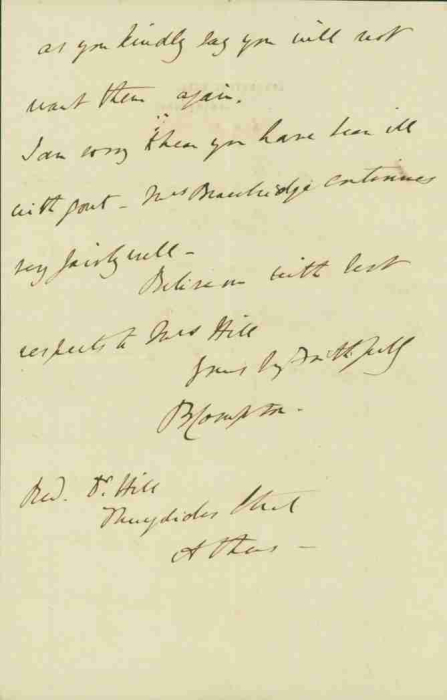 as you kindly say you will not
want them again.
I am sorry to hear you have been ill
with gout - Mrs Bracebridge continues
very fairly well -
Believe me with best
respects to Mrs Hill
Yours very faithfully
BCompton.
Revd. Dr. Hill
Thucydides Street
Athens -